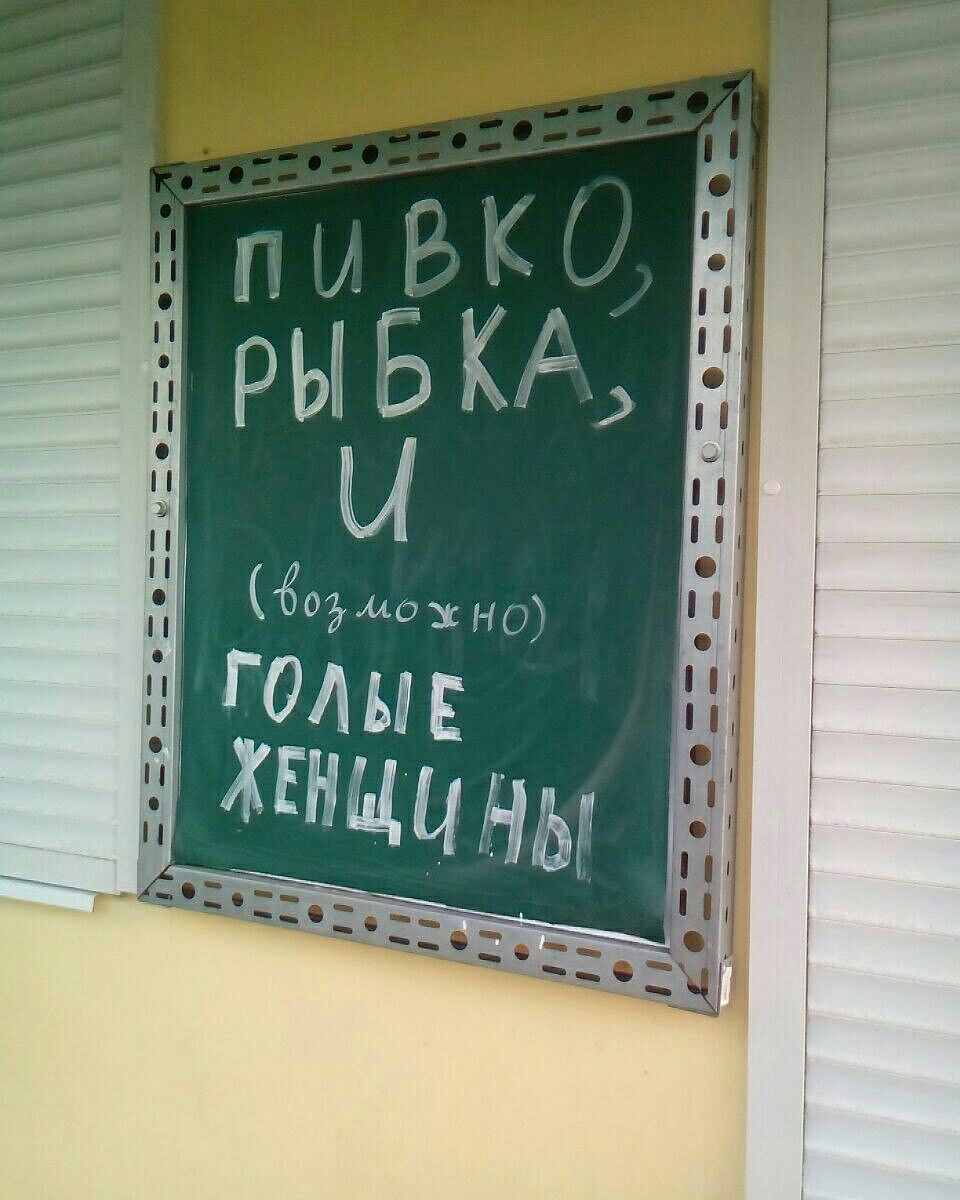 ПИВКО,
РЫБКА,
И
(возможно)
ГОЛЫЕ
ЖЕНЩИНЫ